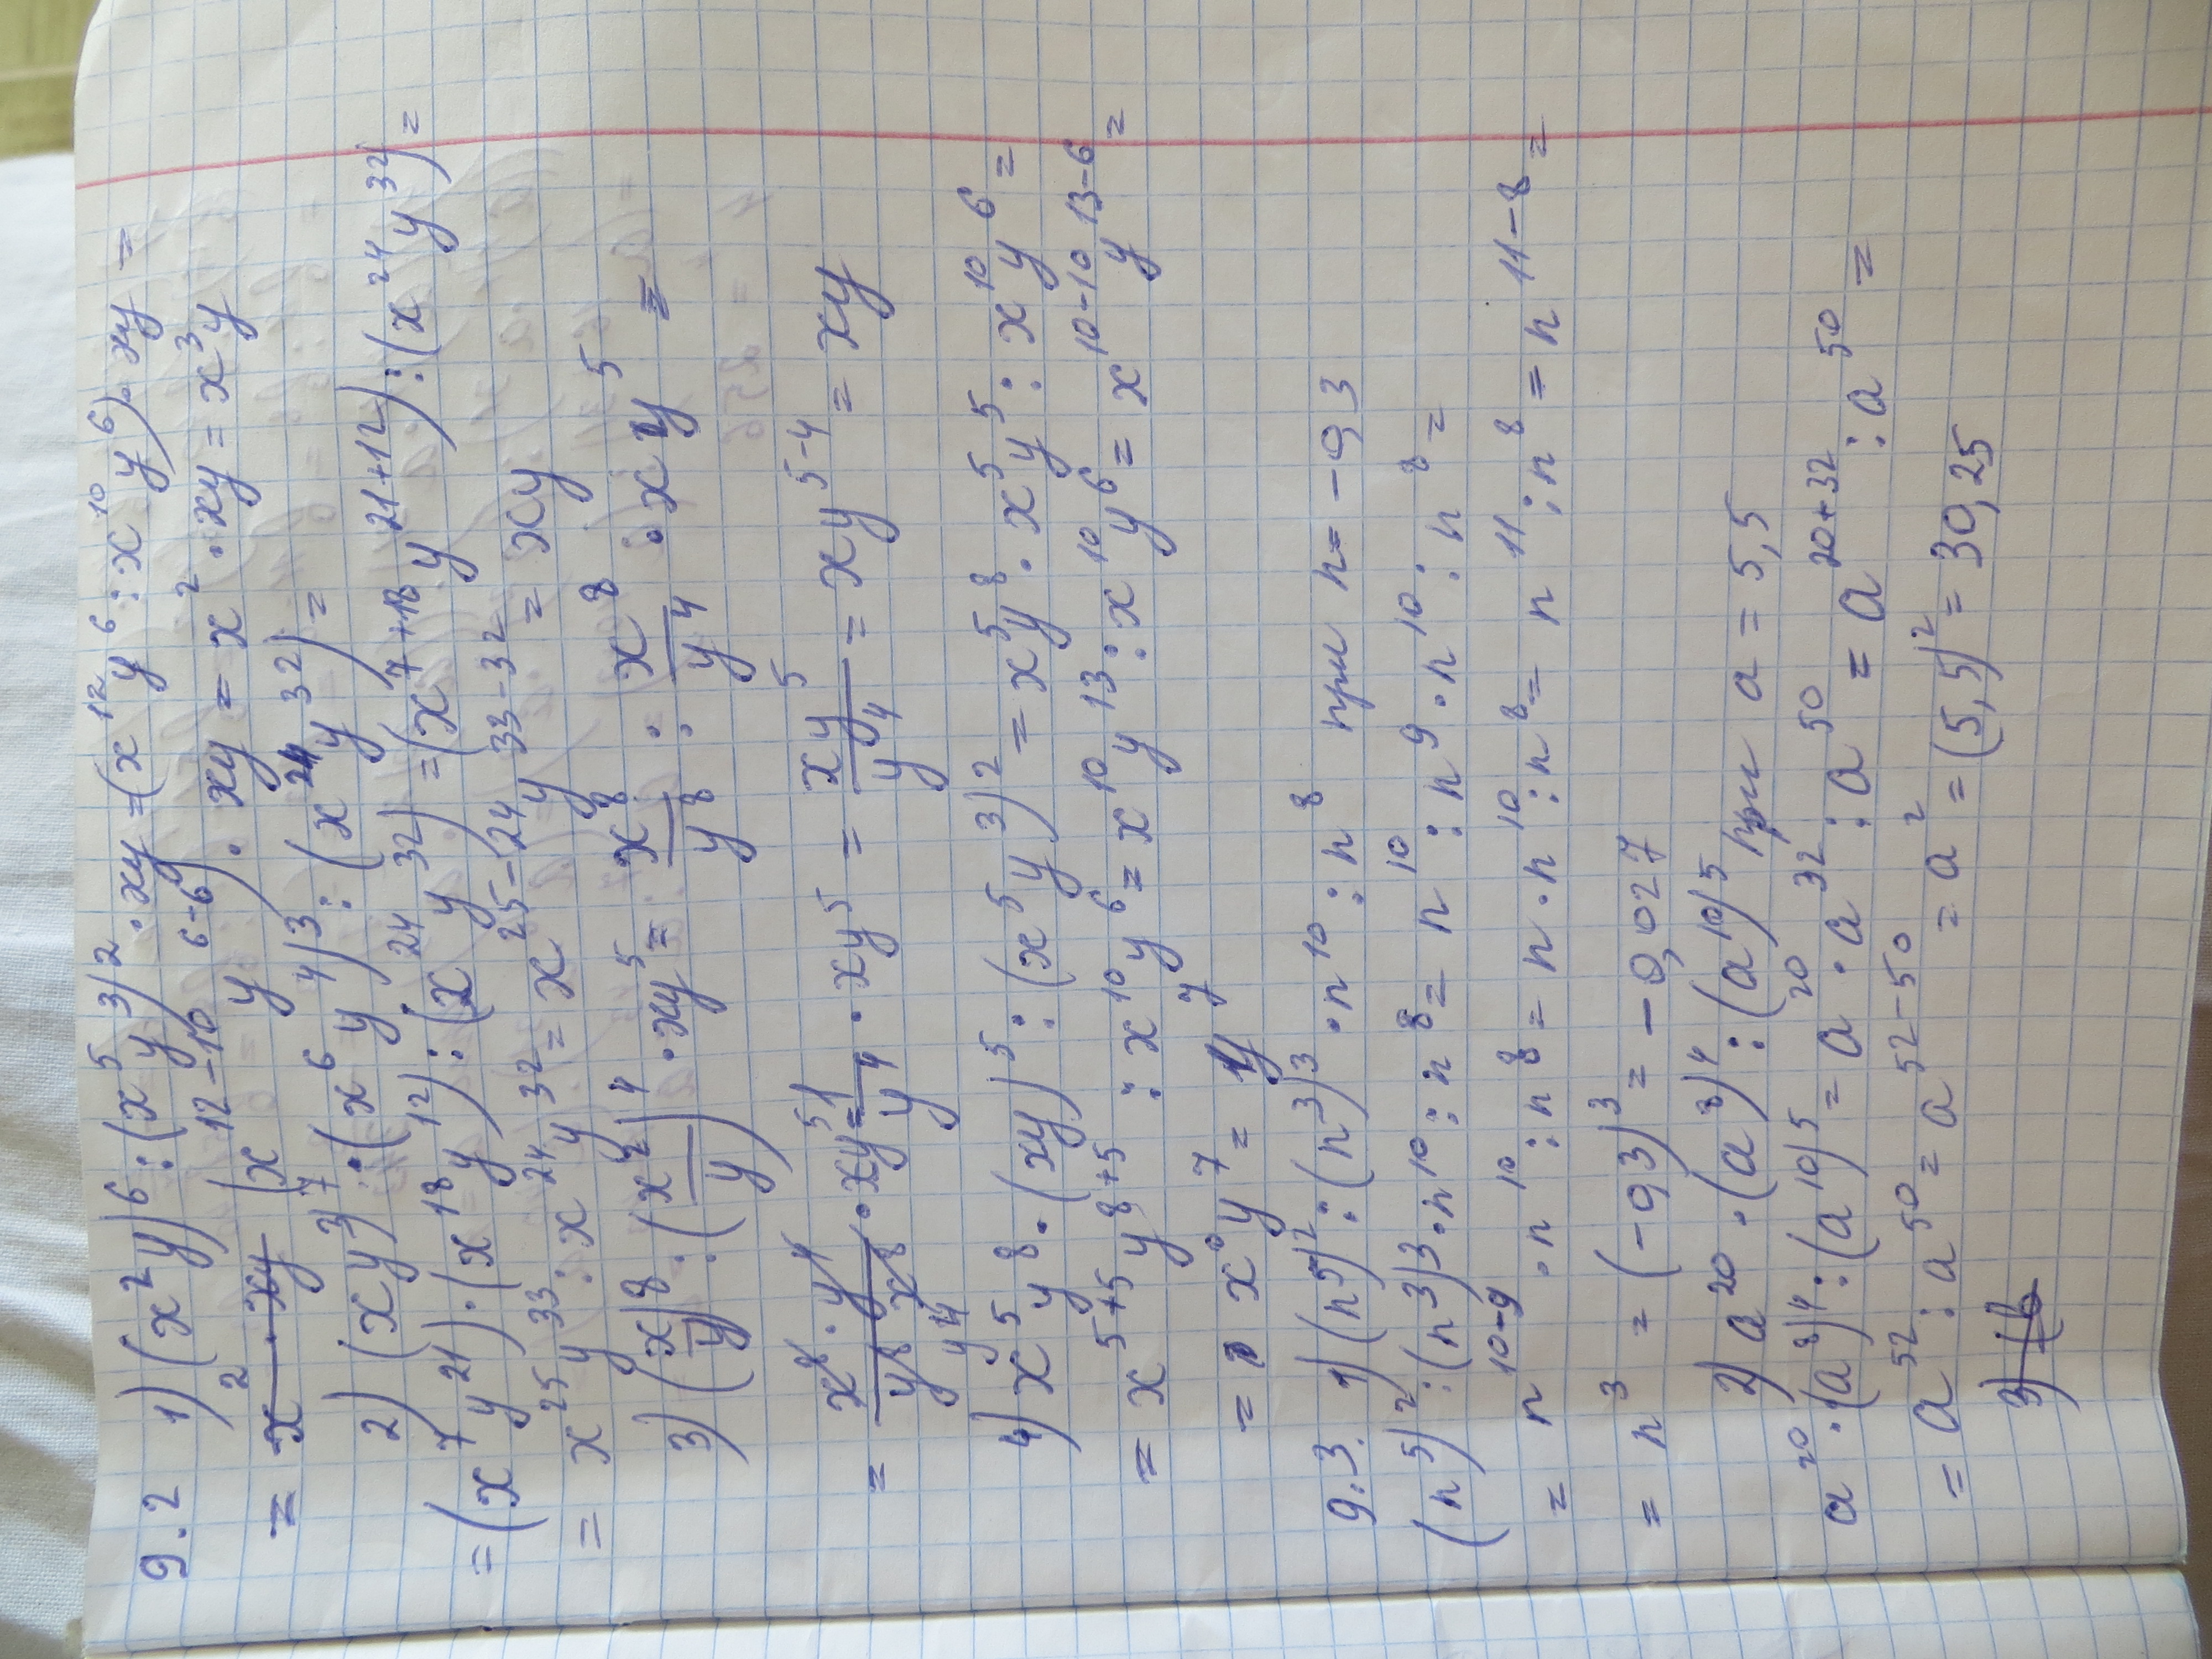 9.2 1) (x²y)⁶ : (x⁵y³)² · xy = (x¹²y⁶ : x¹⁰y⁶) · xy =
= (x¹²⁻¹⁰ y⁶⁻⁶) · xy = x² · xy = x³y
2) (xy³)⁷ · (x⁶y⁴)³ : (x²⁴y³²) =
= (x⁷y²¹) · (x¹⁸y¹²) : (x²⁴y³²) = (x⁷⁺¹⁸ y²¹⁺¹²) : (x²⁴y³²) =
= x²⁵y³³ : x²⁴y³² = x²⁵⁻²⁴ y³³⁻³² = xy
3) (x/y)⁸ : (x²/y)⁴ · xy⁵ = x⁸/y⁸ : x⁸/y⁴ · xy⁵ =
= x⁸ · y⁴/y⁸ x⁸ · xy⁵ = 1/y⁴ · xy⁵ = xy⁵/y⁴ = xy⁵⁻⁴ = xy
4) x⁵y⁸ · (xy)⁵ : (x⁵y³)² = x⁵y⁸ · x⁵y⁵ : x¹⁰y⁶ =
= x⁵⁺⁵y⁸⁺⁵ : x¹⁰y⁶ = x¹⁰y¹³ : x¹⁰y⁶ = x¹⁰⁻¹⁰y¹³⁻⁶ =
= x⁰y⁷ = y⁷
9.3. 1) (n⁵)² : (n³)³ · n¹⁰ : n⁸ при n = -0,3
(n⁵)² : (n³)³ · n¹⁰ : n⁸ = n¹⁰ : n⁹ · n¹⁰ : n⁸ =
= n¹⁰⁻⁹ · n¹⁰ : n⁸ = n · n¹⁰ : n⁸ = n¹¹ : n⁸ = n¹¹⁻⁸ =
= n³ = (-0,3)³ = -0,027
2) a²⁰ · (a⁸)⁴ : (a¹⁰)⁵ при a = 5,5
a²⁰ · (a⁸)⁴ : (a¹⁰)⁵ = a²⁰ · a³² : a⁵⁰ = a²⁰⁺³² : a⁵⁰ =
= a⁵² : a⁵⁰ = a⁵²⁻⁵⁰ = a² = (5,5)² = 30,25
3)